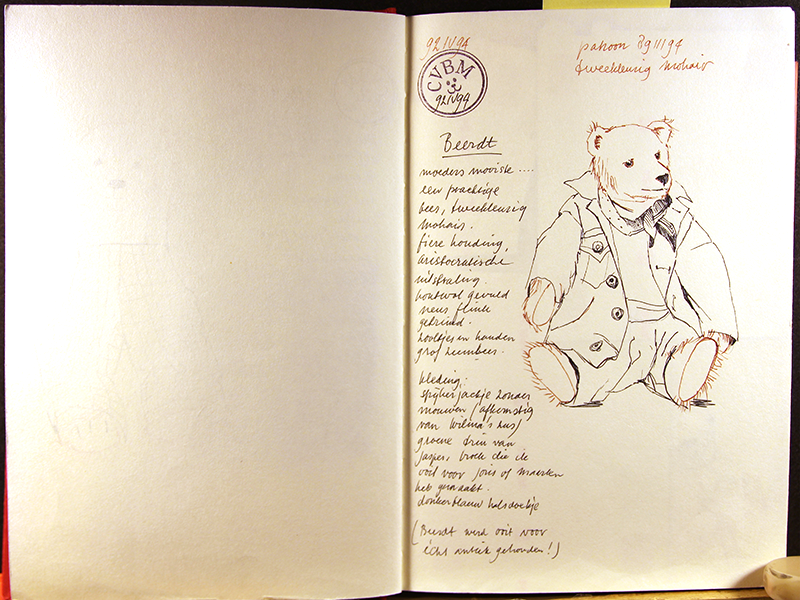 92/IV94
CVBM
92IV94
patroon 89III94
tweekleurig mohair
Beerdt
moeders mooiste ....
een prachtige
beer, tweekleurig
mohair.
fiere houding,
aristocratische
uitstraling.
houtwol gevuld
neus flink
getrimd.
zooltjes en handen
grof
kleding:
spijkerjackje zonder
mouwen (afkomstig
van Wilma's zus)
groene trui van
Jasper, broek die ik
ooit voor Joris of Maarten
heb gemaakt.
donkerblauw halsdoekje
(Beerdt werd ooit voor
écht antiek gehouden!)